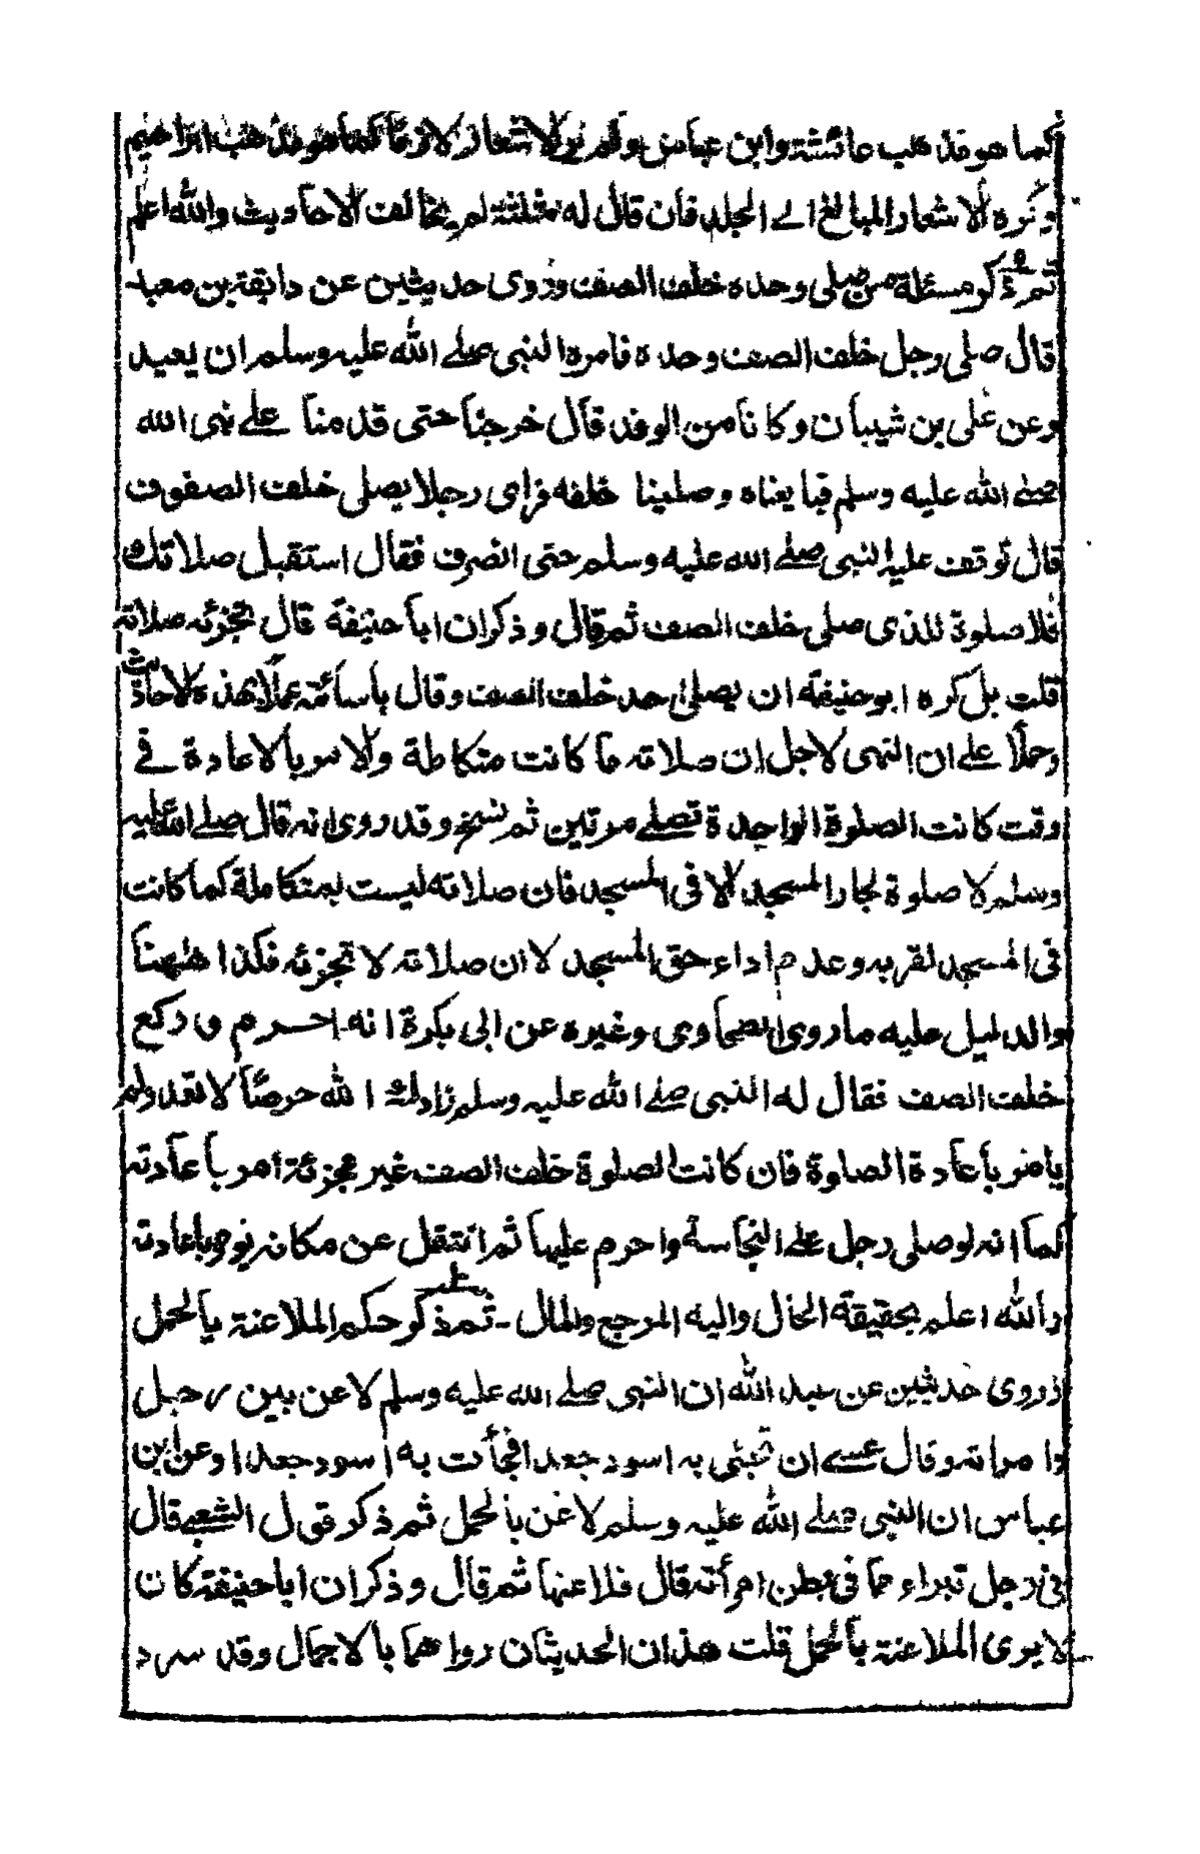 كما هو مذهب عائشة وابن عباس ولم ير الاشعار لازما كما هو مذهب ابراهيم
وكره الاشعار المبالغ الى الجلد فأن قال له مثلثة لم يخالف الاحاديث والله اعلم
ثم ذكر مسئلة من صلى وحده خلف الصف وروى حديثين عن وابقة بن معبد
قال صلى رجل خلف الصف وحده فامره النبى صلے الله عليه وسلم ان يعيد
وعن على بن شيبان وكانا من الوفد قال خرجنا حتى قدمنا علے نبى الله
صلے الله عليه وسلم فبايعناه وصلينا خلفه فراى رجلا يصلى خلف الصفوف
قال فوقف عليه النبى صلے الله عليه وسلم حتى انصرف فقال استقبل صلاتك
فلا صلوة للذى صلى خلف الصف ثم قال وذكر ان ابا حنيفة قال تجزئه صلاته
قلت بل كره ابو حنيفة ان يصلى احد خلف الصف وقال بأسائته عملا بهذه الاحاديث
وحملا علے ان النهى لاجل ان صلاته ما كانت متكاملة والامر بالاعادة فے
وقت كانت الصلوة الواحدة تصلے مرتين ثم نسخ وقد روى انه قال صلے الله عليه
وسلم لا صلوة لجار المسجد الا فى المسجد فان صلاته ليست بمتكاملة كما كانت
فى المسجد لقربه وعدم اداء حق المسجد لا ان صلاته لا تجزئه فكذا ههنا
والدليل عليه ما روى الطحاوى وغيره عن ابى بكرة انه احرم و ركع
خلف الصف فقال له النبى صلے الله عليه وسلم زادك الله حرصا لا تعد ولم
يامر بأعادة الصلوة فان كانت الصلوة خلف الصف غير مجزئة امر بأعادته
كما انه لو صلى رجل علے النجاسة واحرم عليها ثم انتقل عن مكانه يوجب اعادته
والله اعلم بحقيقة الحال واليه المرجع والمال - ثم ذكر حكم الملاعنة بالحمل
وروى حديثين عن عبد الله ان النبى صلے الله عليه وسلم لاعن بين رجل
وامراته وقال عسے ان تجئى به اسود جعدا فجأت به اسود جعدا وعن ابن
عباس ان النبى صلے الله عليه وسلم لاعن بالحمل ثم ذكر قول الشعبے قال
فى رجل تبراء مما فى بطن امرأته قال فلاعنها ثم قال وذكر ان ابا حنيفة كان
لا يرى الملاعنة بألحمل قلت هذان الحديثان رواهما بالاجمال وقد سرد